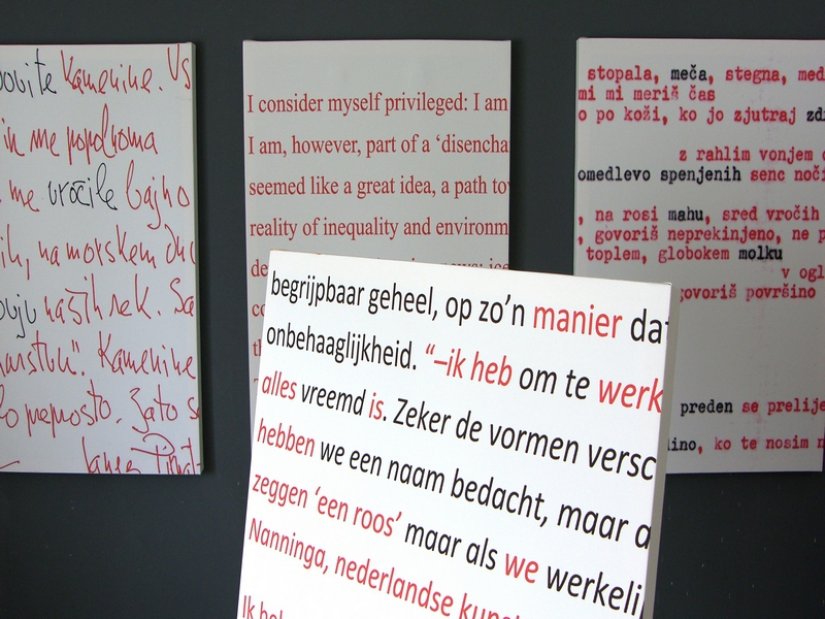 Kamenine. Vs
in me popolnoma
me uročile bajno
ih, na morskem dnu
naših rek. Sa
Kamenine
preprosto. Zato se
I consider myself privileged: I am
I am, however, part of a ‘disencha
seemed like a great idea, a path tow
reality of inequality and environm
stopala, meča, stegna, med
mi mi meriš čas
o po koži, ko jo zjutraj zd
z rahlim vonjem
omedlevo spenjenih senc noči
, na rosi mahu, sred vročih
, govoriš neprekinjeno, ne p
toplem, globokem molku
v ogl
govoriš površino
preden se prelije
lino, ko te nosim n
begrijpbaar geheel, op zo’n manier dat
onbehaaglijkheid. “–ik heb om te werk
alles vreemd is. Zeker de vormen versc
hebben we een naam bedacht, maar a
zeggen ‘een roos’ maar als we werkeli
Nanninga, nederlandse kuns
Ik